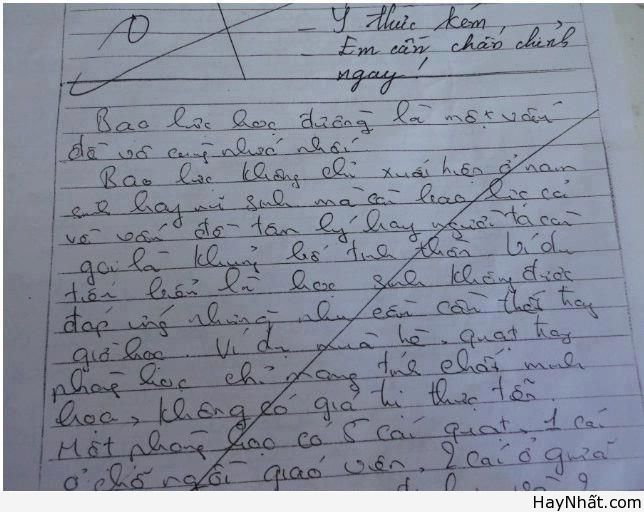 0
- Ý thức kém,
- Em cần chấn chỉnh
ngay!
Bao lực học đường là một vấn
đề vô cùng nhức nhối
Bạo lực không chỉ xuất hiện ở nam
sinh hay nữ sinh mà còn bạo lực cả
về vấn đề tâm lý hay người ta còn
gọi là khủng bố tinh thần. Ví dụ
tiêu biểu là học sinh không được
đáp ứng những nhu cầu cần thiết hay
giờ học. Ví dụ mùa hè, quạt hay
phòng học chỉ mang tính chất minh
họa, không có giá trị thực tiễn.
Một phòng học có 5 cái quạt, 1 cái
ở chỗ ngồi giáo viên, 2 cái ở giữa
HayNhất.com